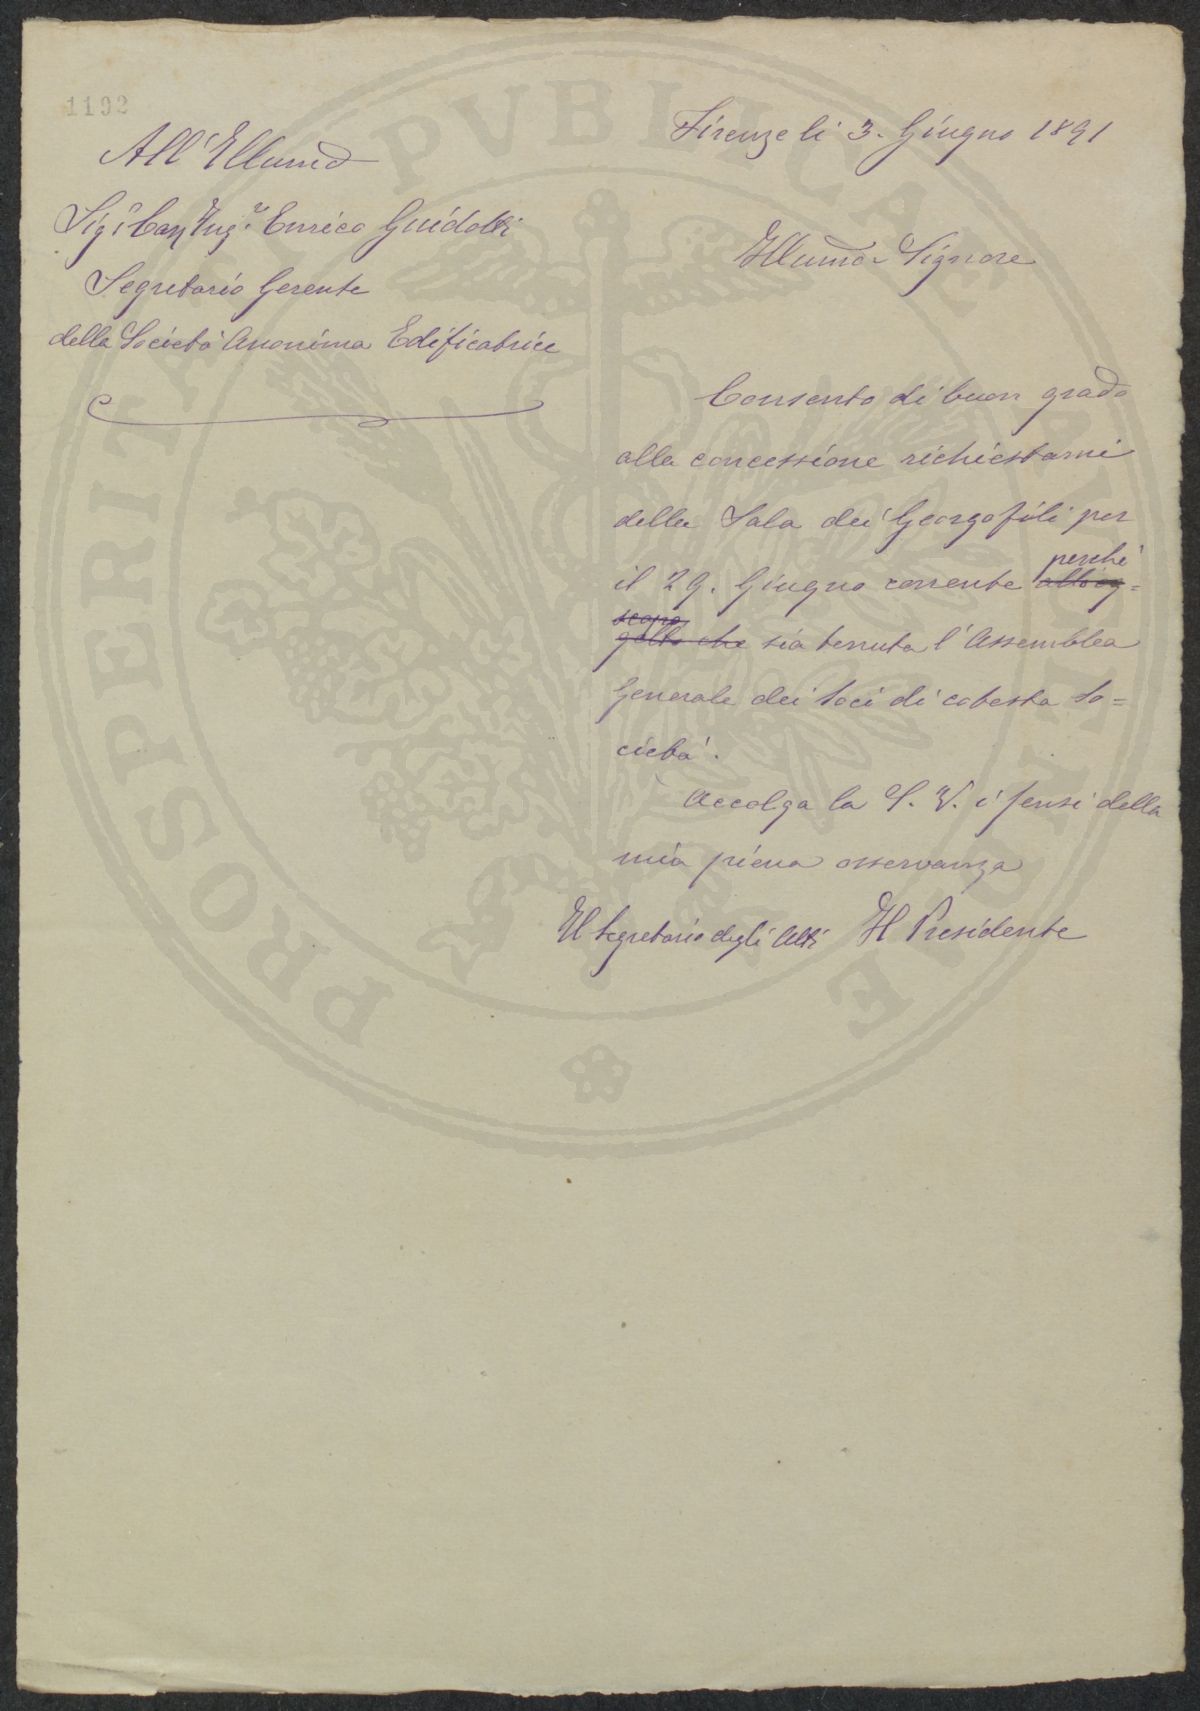 1192
Firenze li 3. Giugno 1891
All' Illumo
Sigr Cav Ingr Enrico Guidotti
Segretario Gerente
della Società Anonima Edificatrice
Illumo Signore
Consento di buon grado
alla concessione richiestami
della Sala dei Georgofili per
il 29. Giugno corrente perchè
scopo
sia tenuta l'Assemblea
Generale dei Soci di cotesta So=
cietà.
Accolga la S. V. i sensi della
mia piena osservanza
Il Segretario degli Atti Il Presidente
PROSPERITATI PVBLICAE